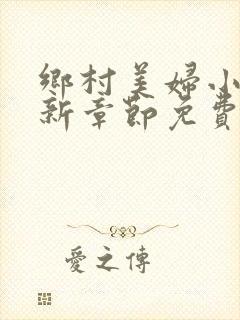 鄉村美婦小
新章節免費
愛之傳